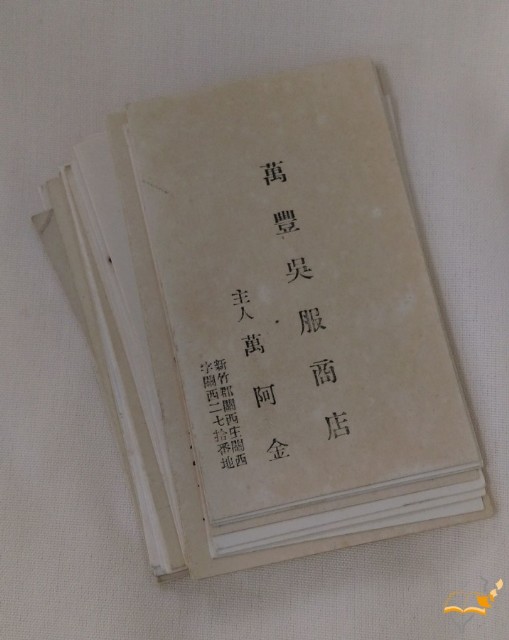 萬豐吳服商店
主人 萬阿金
新竹郡關西庄關西
字關西二七拾番地